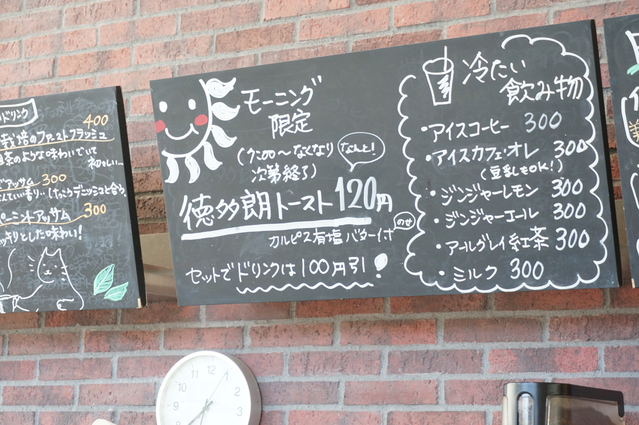 ドリンク
400
栽培のファストフラッシュ
アッサム 300
ペーパーミントアッサム
300
した味わい!
モーニング
限定
(7:00〜なくなり
次第終了)
なんと!
徳多朗トースト120円
カルピス有塩バター付
のせ
セットでドリンクは100円引!
冷たい
飲み物
・アイスコーヒー 300
・アイスカフェ・オレ 300
(豆乳もOK!)
・ジンジャーレモン 300
・ジンジャーエール 300
・アールグレイ紅茶 300
・ミルク 300